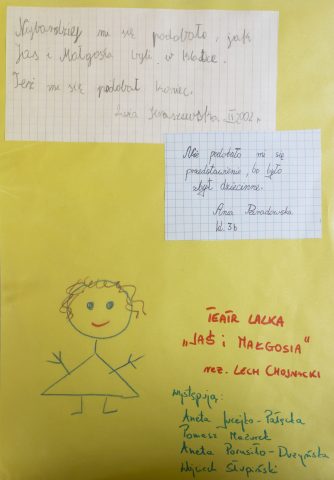 Najbardziej mi się podobało, jak
Jaś i Małgosia byli w klatce.
Też mi się podobał koniec.
Nie podobało mi się
przedstawienie, bo było
zbyt dziecinne.
Ania
kl. 3b
TEATR LALKA
„JAŚ i MAŁGOSIA"
REŻ. LECH CHOJNACKI
występują:
Aneta Jucejko-Pałęcka
Tomasz Mazurek
Aneta Porusiło-Dużyńska
Wojciech Słupiński